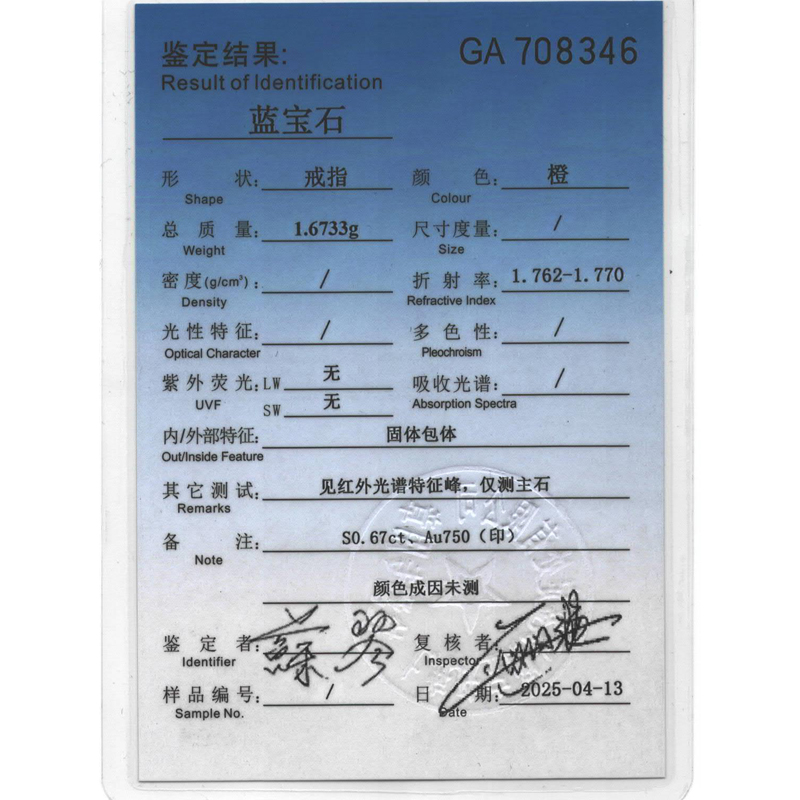 鉴定结果: GA 708346
Result of Identification
蓝宝石
形 状: 戒指 颜 色: 橙
Shape Colour
总 质 量: 1.6733g 尺寸度量: /
Weight Size
密度(g/cm³): / 折 射 率: 1.762-1.770
Density Refractive Index
光性特征: / 多 色 性: /
Optical Character Pleochroism
紫外荧光: LW 无 吸收光谱: /
UVF SW 无 Absorption Spectra
内/外部特征: 固体包体
Out/Inside Feature
其它测试: 见红外光谱特征峰，仅测主石
Remarks
备 注: S0.67ct、Au750（印）
Note
颜色成因未测
鉴 定 者: 复 核 者:
Identifier Inspector
样品编号: / 日 期: 2025-04-13
Sample No. Date